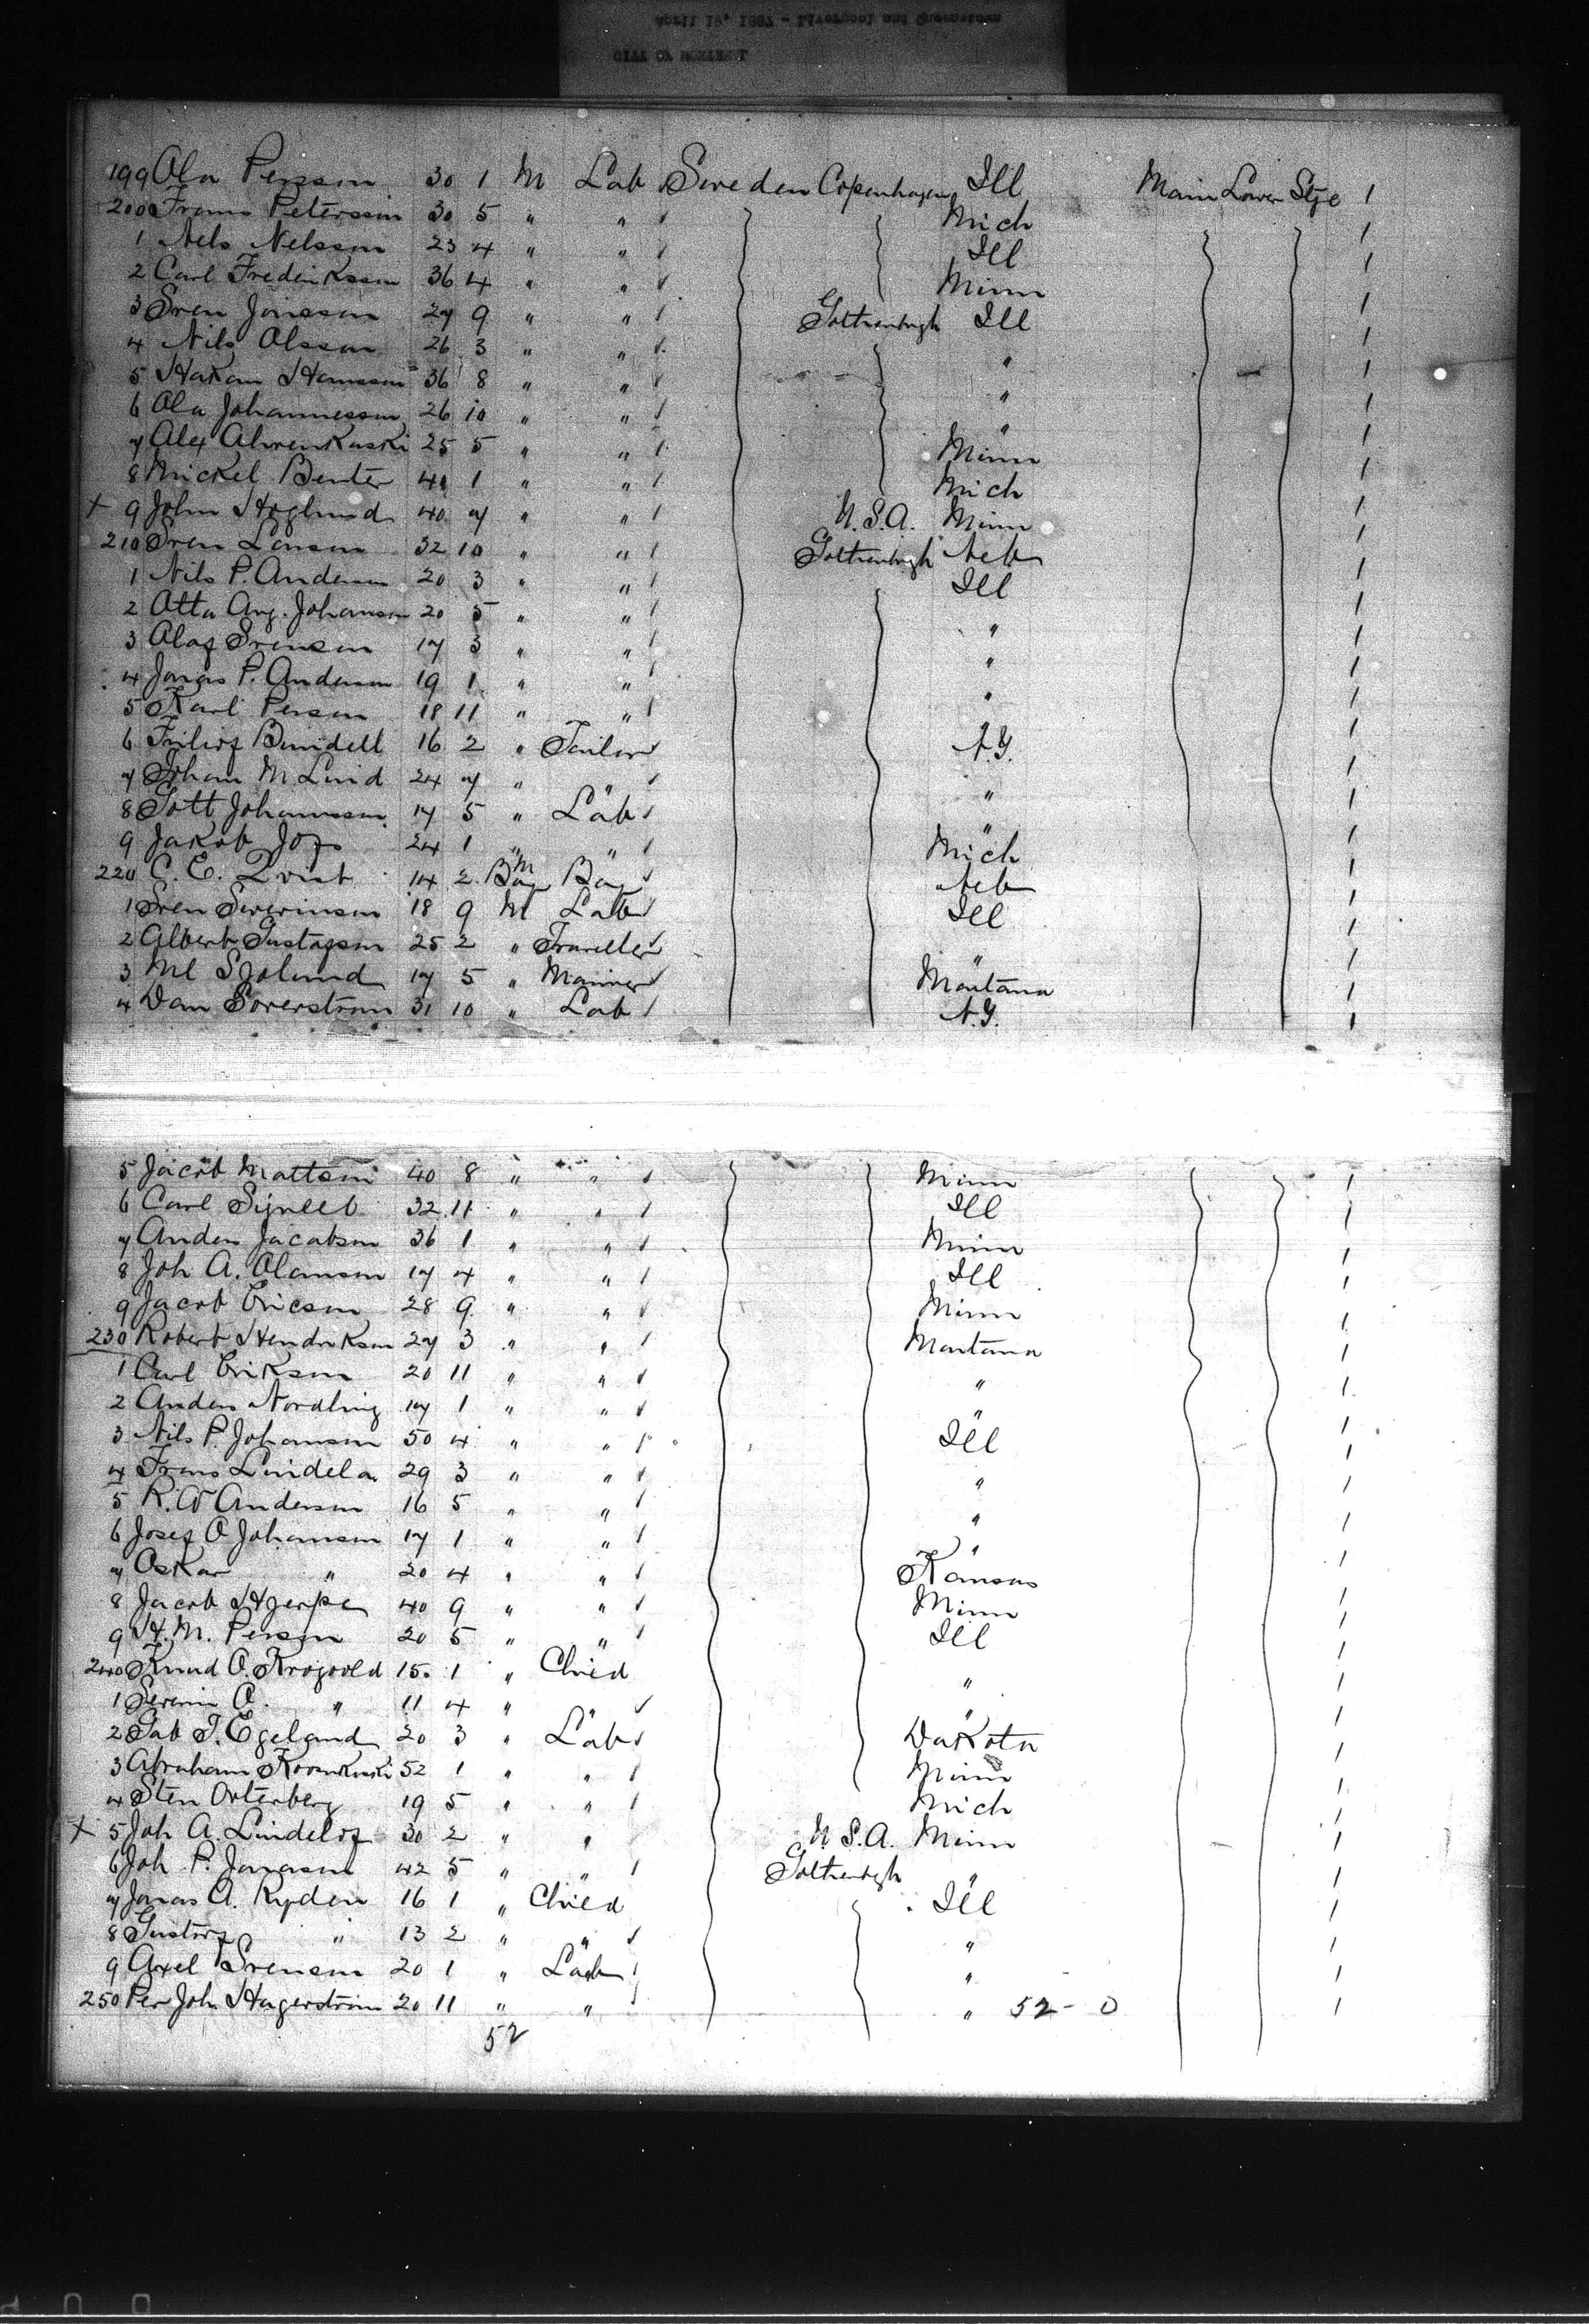 199 Ola Persson 30 1 M Lab Sweden Copenhagen Ill Main Lower Stge 1
200 Frans Petersson 30 5 " " Mich 1
1 Nels Nelsson 23 4 " " Ill 1
2 Carl Frederiksson 36 4 " " Minn 1
3 Sven Jonsson 27 9 " " Gothenbrgh Ill 1
4 Nils Olsson 26 3 " " " 1
5 Hakan Hansson 36 8 " " " 1
6 Ola Johannesson 26 10 " " " 1
7 Alex 25 5 " " Minn 1
8 Mickel Benter 1 " " Mich 1
x 9 John Hoglund 40 7 " " U.S.A. Minn 1
210 Sven Larson 32 10 " " Gothenbrgh Neb 1
1 Nils P. Anderson 20 3 " " Ill 1
2 Otto Aug. Johanson 20 5 " " " 1
3 Olof Svenson 17 3 " " " 1
4 Jonas P. Anderson 19 1 " " " 1
5 Karl Person 18 11 " " " 1
6 16 2 " Tailor N.Y. 1
7 Johan M Lind 24 7 " " " 1
8 Gott Johansson 17 5 " Lab " 1
9 Jakob 24 1 " " Mich 1
220 C. E. Qvist 14 2 Boy M Boy Neb 1
1 Sven Swerinson 18 9 M Lab Ill 1
2 Albert Gustafson 25 2 " Traveller " 1
3 Ml Sjolund 17 5 " Mariner Montana 1
4 Dan Soverstrom 31 10 " Lab N.Y. 1
5 Jacob Mattson 40 8 " " Minn 1
6 Carl 32 11 " " Ill 1
7 Anders Jacobson 36 1 " " Minn 1
8 Joh A. Olanson 17 4 " " Ill 1
9 Jacob Ericson 28 9 " " Minn 1
230 Robert Hendrikson 27 3 " " Montana 1
1 Carl Erikson 20 11 " " " 1
2 Anders Nordling 17 1 " " " 1
3 Nils P. Johanson 50 4 " " Ill 1
4 Frans 29 3 " " " 1
5 Anderson 16 5 " " " 1
6 Josef O Johanson 17 1 " " " 1
7 Oskar " 20 4 " " Kansas 1
8 Jacob Hjerpe 40 9 " " Minn 1
9 H. M. Person 20 5 " " Ill 1
240 Knud O. Krogvold 15 1 " Child " 1
1 Severin O. " 11 4 " " 1
2 Gab T. Egeland 20 3 " Lab Dakota 1
3 Abraham 52 1 " " Minn 1
4 Sten Osterberg 19 5 " " Mich 1
x 5 Joh A. Lindelof 30 2 " " U.S.A. Minn 1
6 Joh P. Jonason 42 5 " " Gothenbrgh " 1
7 Jonas A. Ryden 16 1 " Child Ill 1
8 Gustof " 13 2 " " " 1
9 Axel Svenson 20 1 " Lab " 1
250 Per Joh Hagerstrom 20 11 " " " 52 - 0 1
52